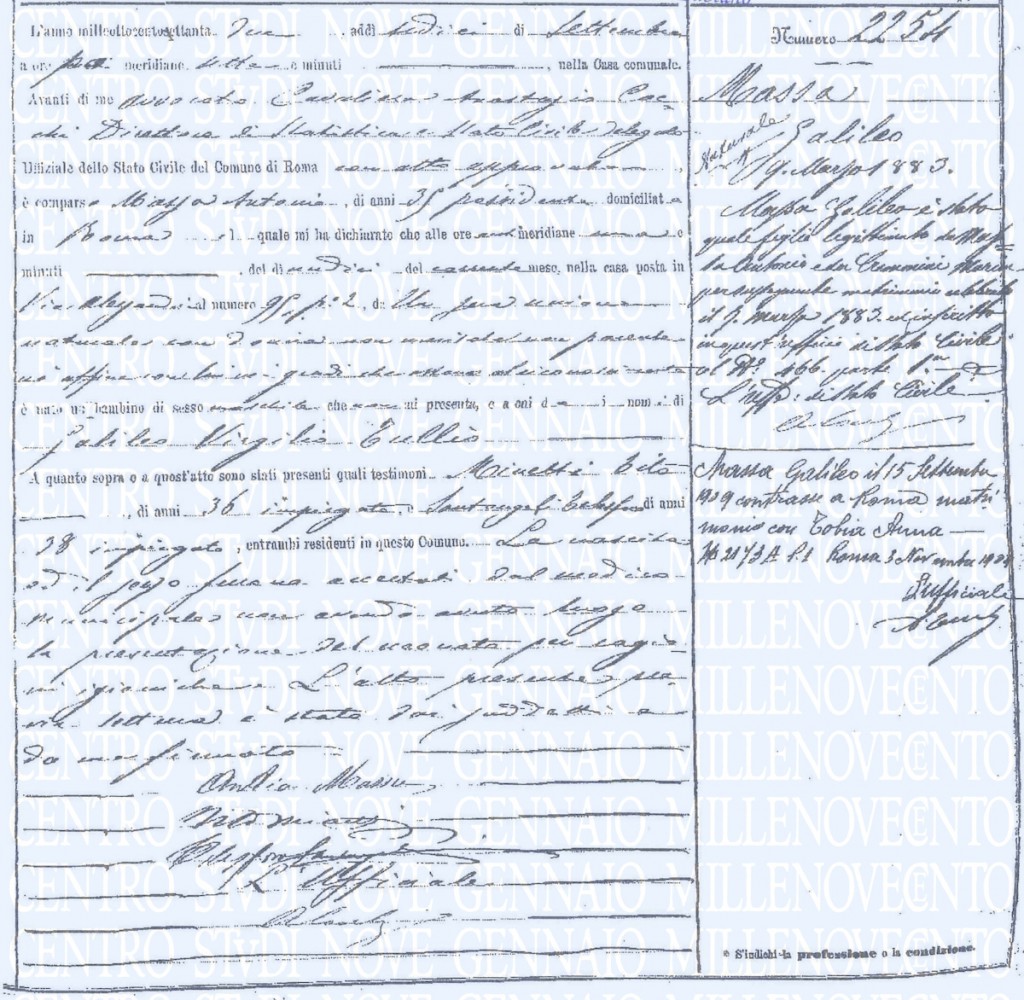 L'anno milleottocentosettanta , addì di Settembre
a ore meridiane sette e minuti , nella Casa comunale.
Avanti di me Avvocato Cavaliere Anastasio
Direttore di Statistica e Stato Civile delegato
Uffiziale dello Stato Civile del Comune di Roma con atto approvato
è comparso Massa Antonio, di anni 35 possidente domiciliato
in Roma il quale mi ha dichiarato che alle ore meridiane una e
minuti , del dì undici del corrente mese, nella casa posta in
Via al numero 95, p° 2, da sua unione
naturale con donna non maritata non parente
nè affine con lui nei gradi che ostano al riconoscimento
è nato un bambino di sesso maschile che non mi presenta, e a cui dà i nomi di
Galileo Virgilio Tullio
A quanto sopra e a quest'atto sono stati presenti quali testimoni Minetti Tito
, di anni 36 impiegato, e Santangeli Telesforo di anni
38 impiegato, entrambi residenti in questo Comune. La nascita
ed il sesso furono accertati dal medico
municipale non avendo avuto luogo
la presentazione del neonato per ragio-
ni igieniche. L'atto presente pre-
via lettura è stato dai suddetti e
da me firmato
Antonio Massa
L'Uffiziale
Numero 2254
Massa
Galileo
Naturale
9. Marzo 1883.
Massa Galileo è stato
quale figlio legittimato da Mas-
sa Antonio e da Maria
per susseguente matrimonio celebrato
il 9. marzo 1883. ed inscritto
in quest'ufficio di Stato Civile
al N° 466 parte 1ª
L'Uff: di Stato Civile
Massa Galileo il 15 Settembre
1929 contrasse a Roma matri
monio con Tobia Anna
N 2173 A P.1 Roma 3 Novembre 1929
L'ufficiale
* S'indichi la professione o la condizione.
CENTRO STVDI NOVE GENNAIO MILLENOVECENTO